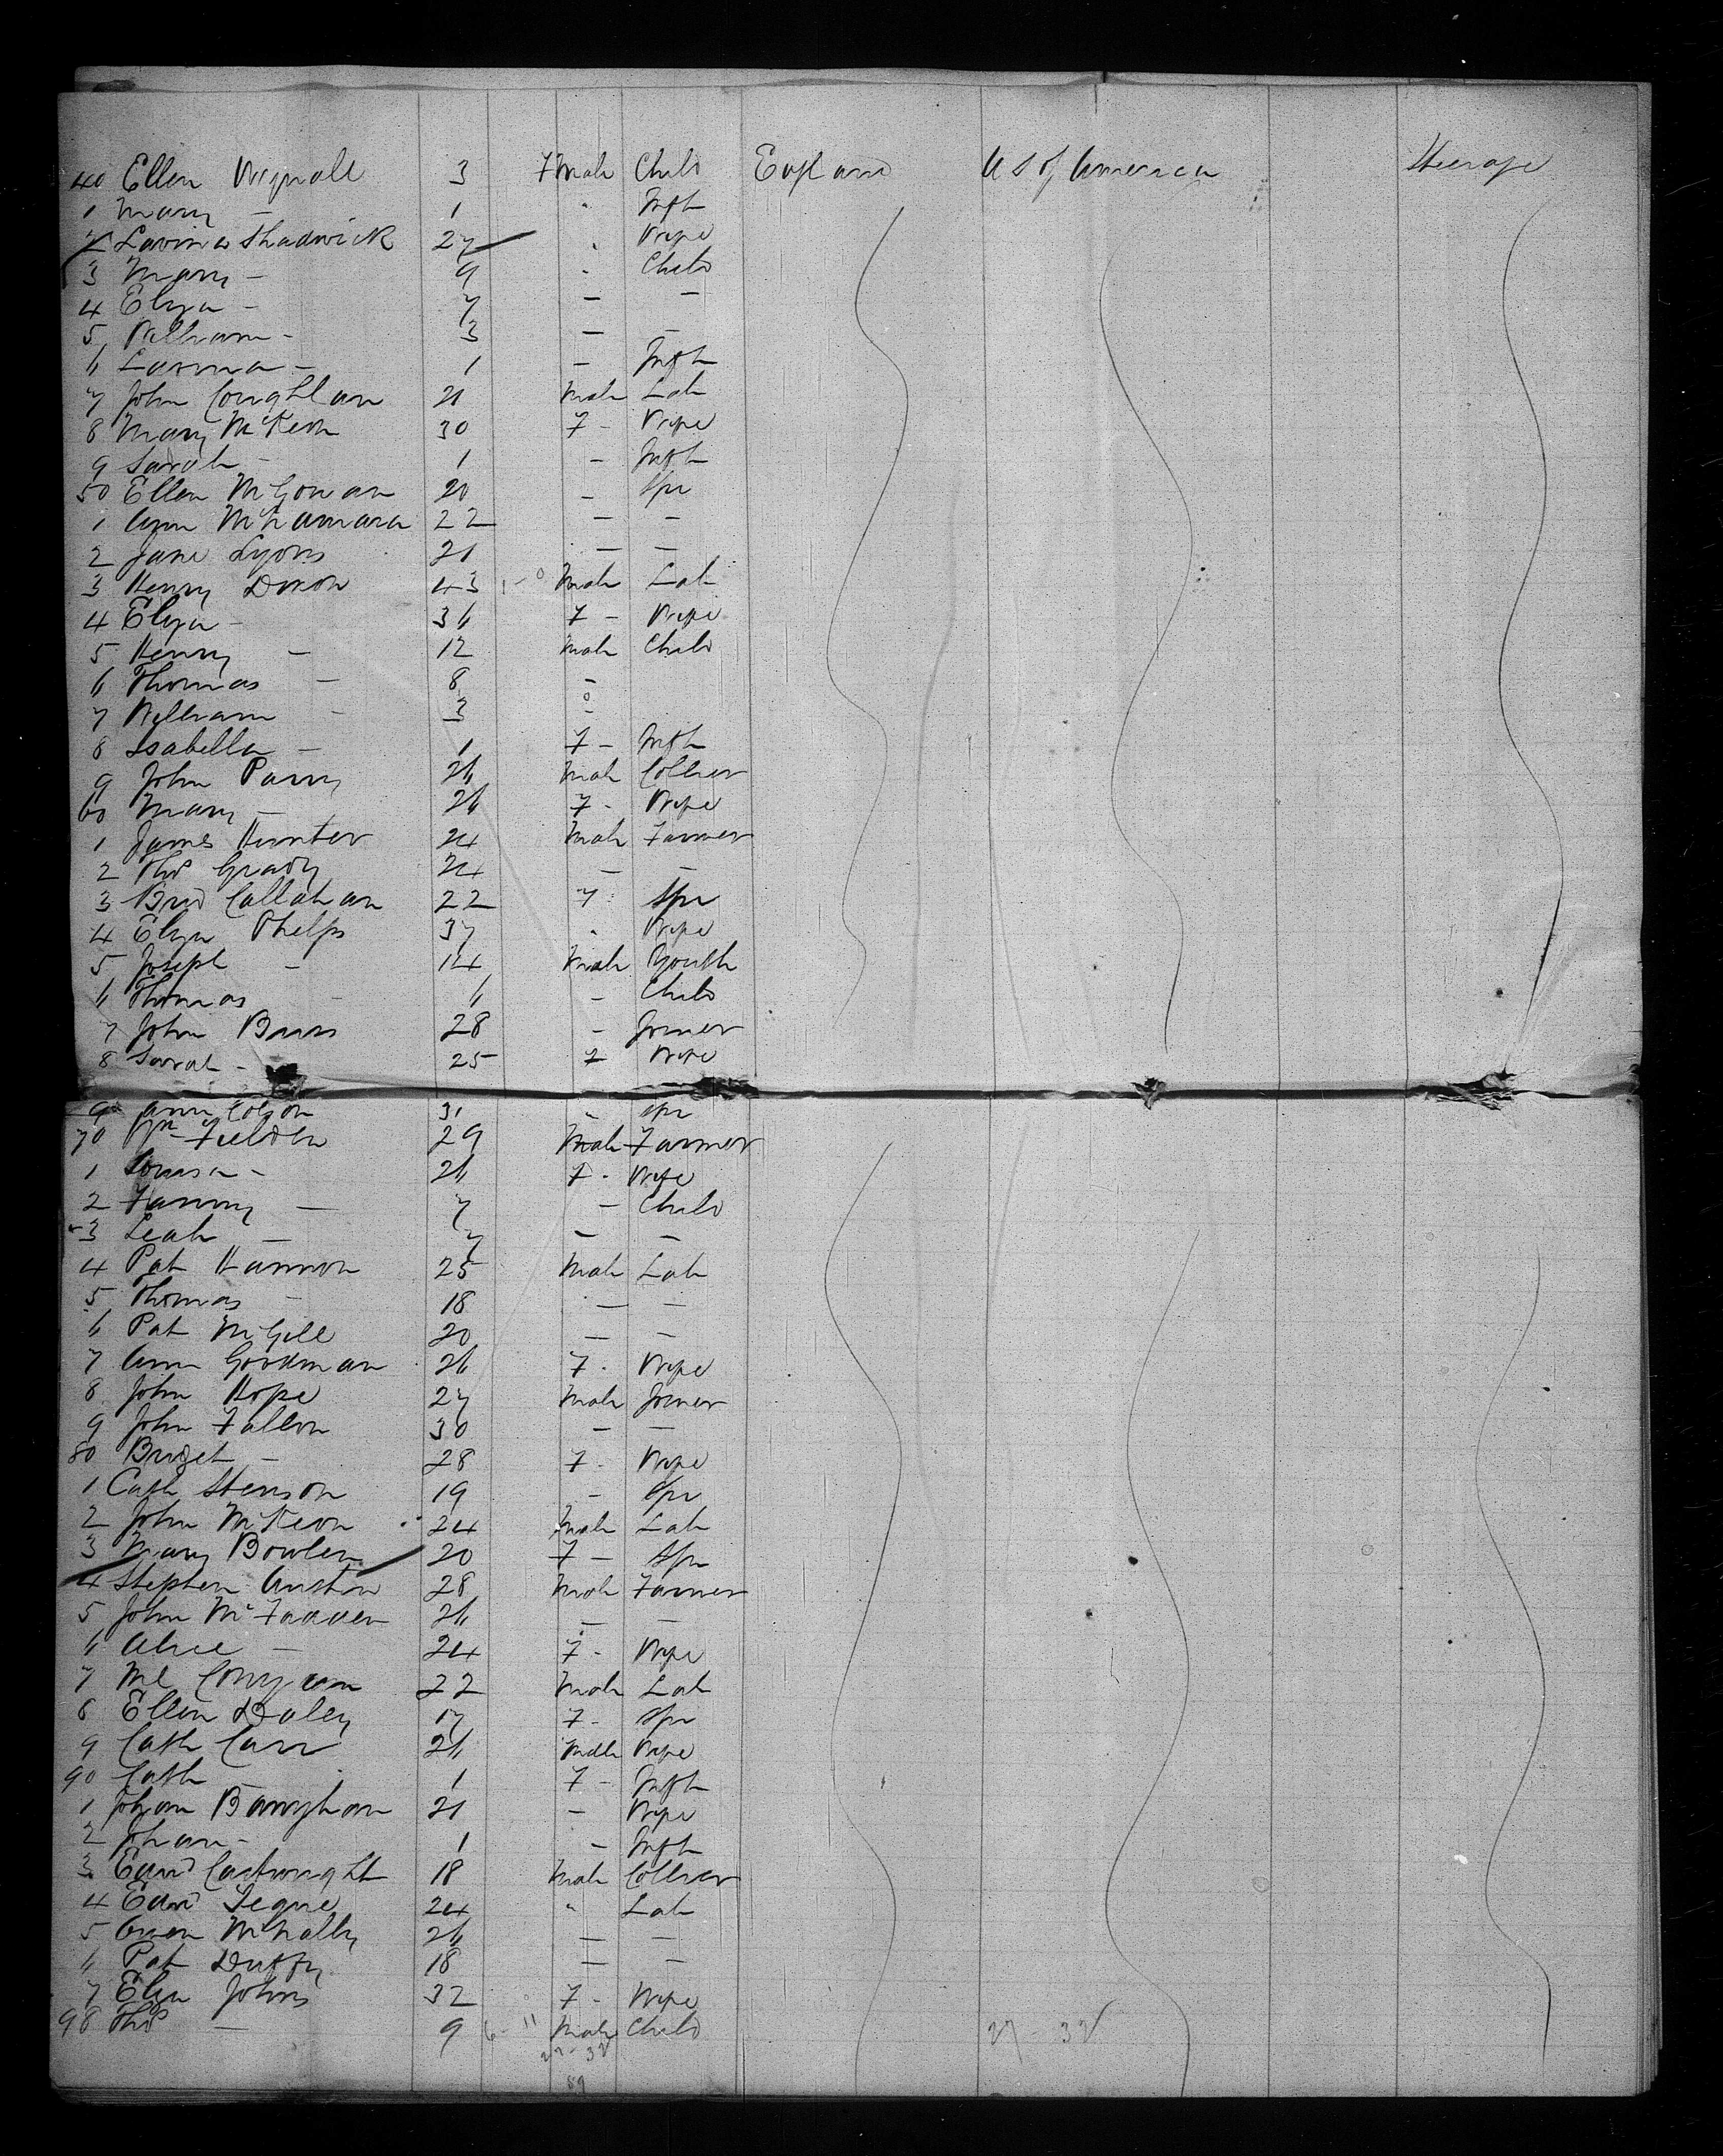 40 Ellen Wignall 3 Female Child England U S of America Steerage
1 Mary - 1 " Inft
2 Lavinia Shadwick 27 " Wife
3 Mary - 9 " Child
4 Eliza - 7 - -
5 William - 3 - -
6 Lavinia - 1 - Inft
7 John Coughlan 21 Male Lab
8 Mary McKeon 30 F - Wife
9 Sarah - 1 - Inft
50 Ellen McGowan 20 - Spr
1 Ann McNamara 22 - -
2 Jane Lyons 21 - -
3 Henry Dixon 43 Male Lab
4 Eliza - 36 F - Wife
5 Henry - 12 Male Child
6 Thomas - 8 -
7 William - 3 -
8 Isabella - 1 F - Inft
9 John Parry 26 Male Collier
60 Mary - 26 F - Wife
1 James Hunter 24 Male Farmer
2 Thos Grady 24 - -
3 Brid Callahan 22 F Spr
4 Eliza Phelps 37 " Wife
5 Joseph - 14 Male Youth
6 Thomas - 6 - Child
7 John Buss 28 - Joiner
8 Sarah - 25 F Wife
9 Ann 31 - Spr
70 Wm Fielden 29 Male Farmer
1 Louisa - 26 F - Wife
2 Fanny - 7 - Child
3 Leah - 7 - -
4 Pat Hannon 25 Male Lab
5 Thomas - 18 - -
6 Pat McGill 20 - -
7 Ann Goodman 26 F - Wife
8 John Hope 27 Male Joiner
9 John Fallon 30 - -
80 Bridget - 28 F - Wife
1 Cath Stenson 19 - Spr
2 John McKeon 24 Male Lab
3 Mary Bowler 20 F - Spr
4 Stephen Austin 28 Male Farmer
5 John McFadden 26 - -
6 Alice - 24 F - Wife
7 Ml 22 Male Lab
8 Ellen Daley 17 F - Spr
9 Cath Carr 26 Male Wife
90 Cath - 1 F - Inft
1 Johan 21 - Wife
2 Johan - 1 - Inft
3 Edwd Cartwright 18 Male Collier
4 Edwd Tegue 24 " Lab
5 Owen McNally 26 - -
6 Pat Duffy 18 - -
7 Eliza Johns 32 F - Wife
98 Thos - 9 6 - 11 Male Child 27 - 32
27 - 32
89